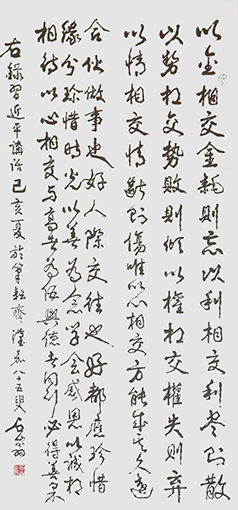 以金相交金耗则忘以利相交利尽则散
以势相交势败则倾以权相交权失则弃
以情相交情断则伤唯以心相交方能成其久远
合伙做事也好人际交往也好都應珍惜
缘分珍惜时光以善为念学会感恩以诚相
相待以心相交与高者为伍與德者同行必得善果
右錄習近平講話己亥夏於筆耘齊八十五叟石翁